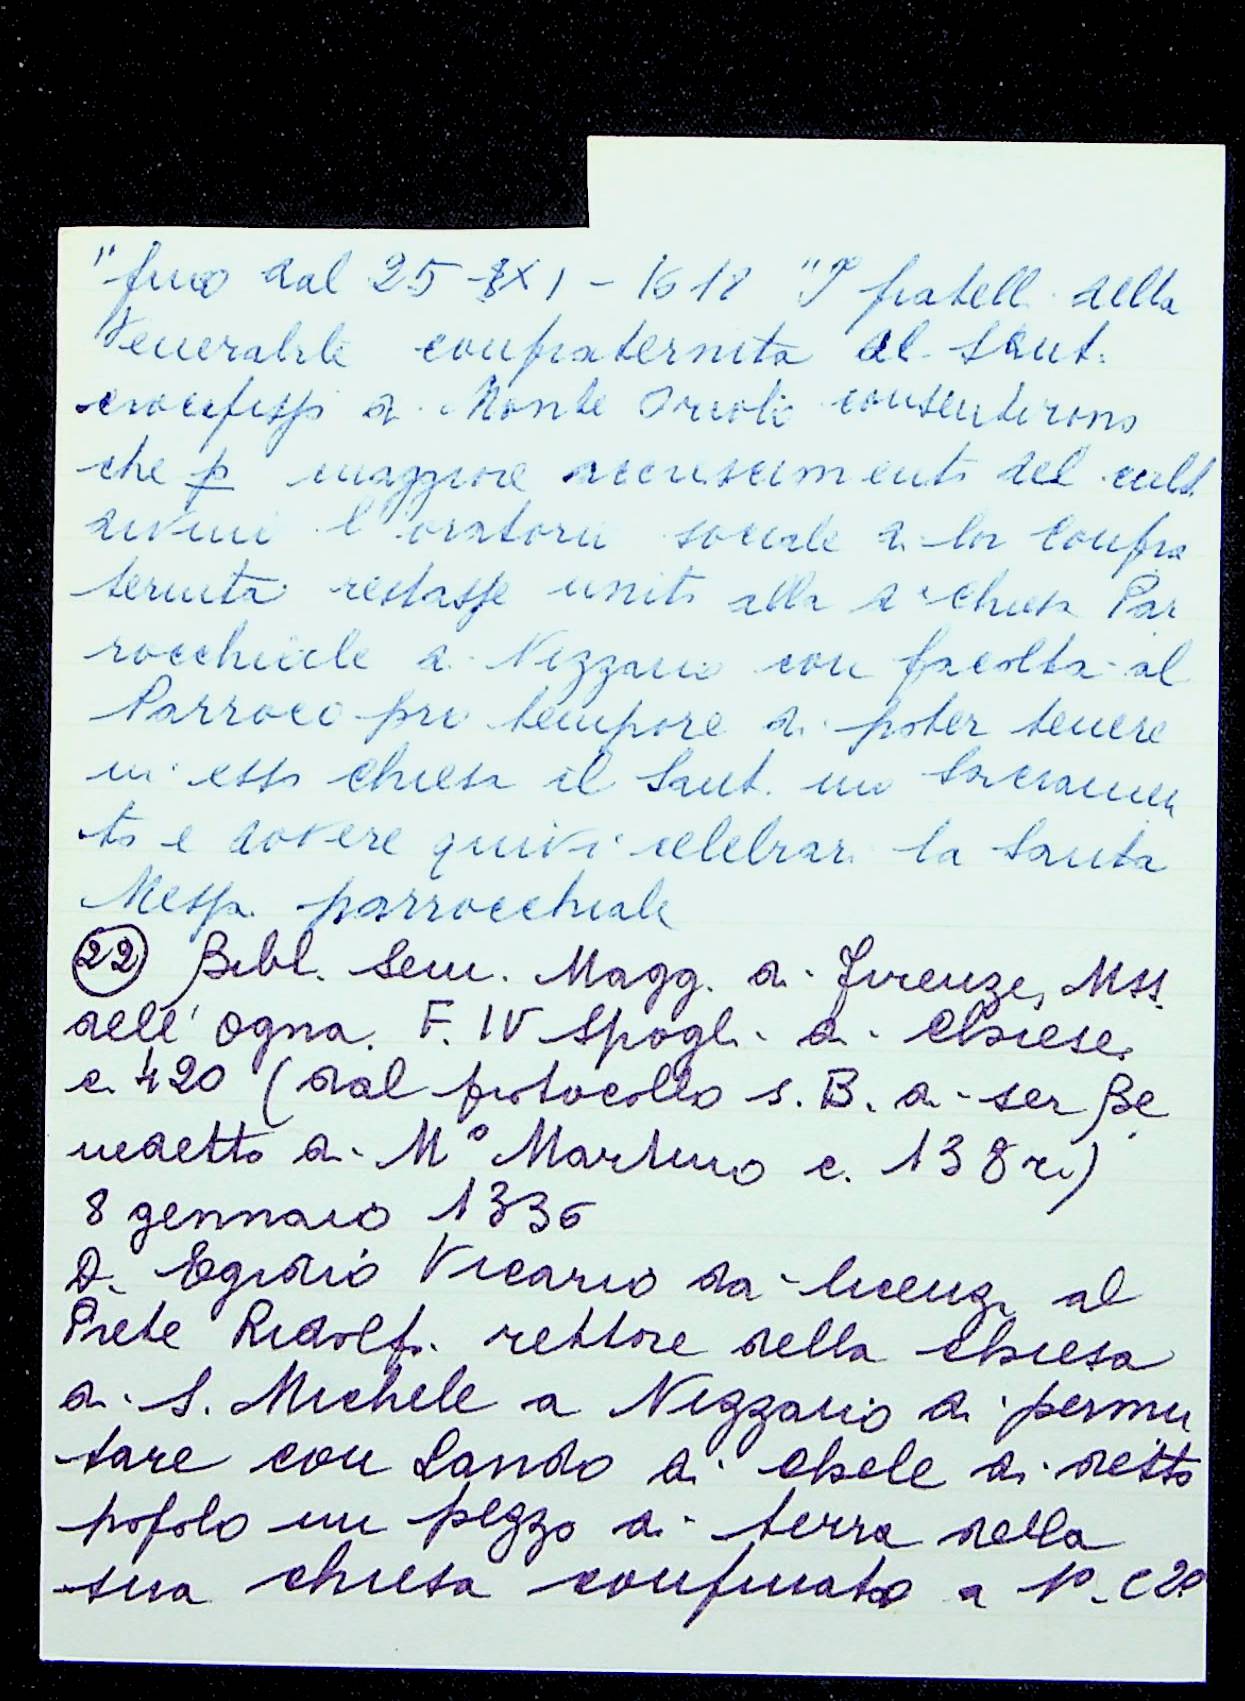 "fino dal 25-XI-1618 "I fratelli della
Venerabile confraternita del Sant.
crocefisso a Monte Orioli consentirono
che p maggiore accrescimento del culto
divino l'oratorio sociale di lor confra
ternita restasse unito alla d. chiesa Par
rocchiale di Nizzano con facoltà al
Parroco pro tempore di poter tenere
in essa chiesa il Sant.mo Sacramen
to e dovere quivi celebrar la Santa
Messa parrocchiale
(22) Bibl. Sem. Magg. di Firenze, Mss.
dell' Ogna. F. IV Spogli di Chiese
c. 420 (dal protocollo s. B. di ser Be
nedetto di M° Martino c. 138 r.)
8 gennaio 1336
D. Egidio Vicario dà licenza al
Prete Ridolfo rettore della chiesa
di S. Michele a Nizzano di permu
tare con Lando di Chele di detto
popolo un pezzo di terra della
sua chiesa confinato a 1°. c 2°